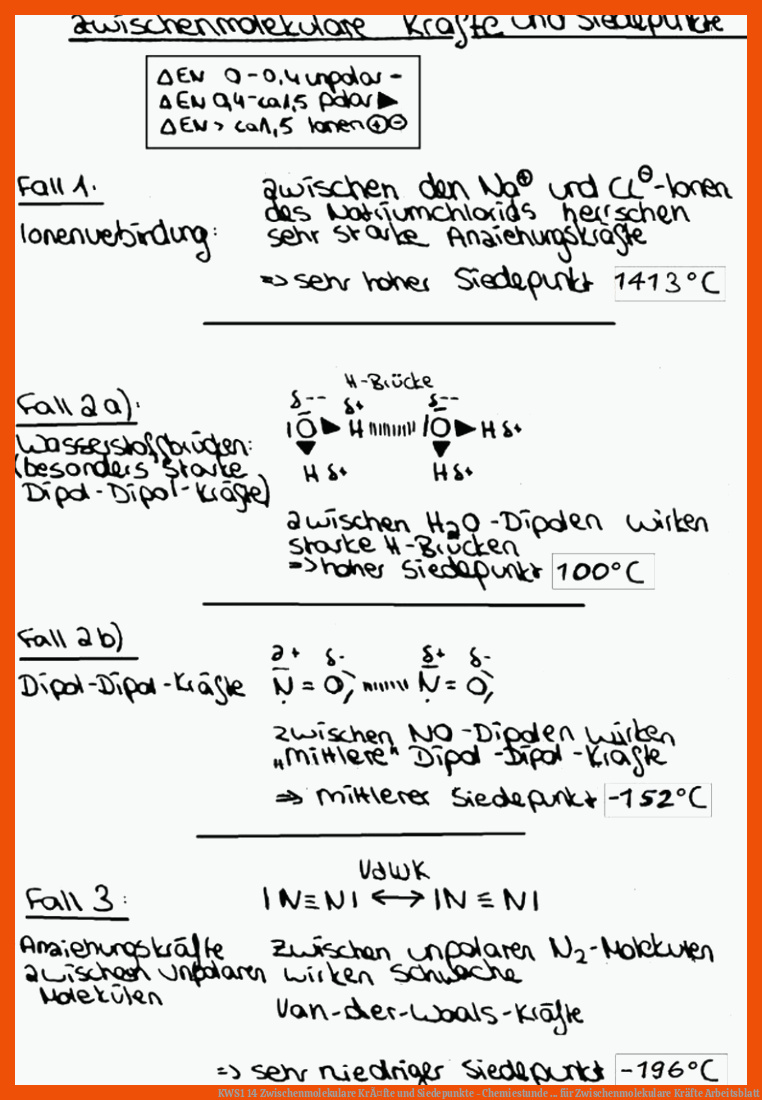 Zwischenmolekulare Kräfte und Siedepunkte
ΔEN 0-0,4 unpolar -
ΔEN 0,4-ca1,5 polar ▶
ΔEN > ca1,5 Ionen ⊕⊖
Fall 1:
Ionenverbindung:
zwischen den Na⊕ und Cl⊖-Ionen
des Natriumchlorids herrschen
sehr starke Anziehungskräfte
=> sehr hoher Siedepunkt 1413°C
Fall 2a):
Wasserstoffbrücken:
(besonders starke
Dipol-Dipol-Kräfte)
H-Brücke
δ-- δ+ δ--
|O ▶ H |O ▶ H δ+
H δ+ H δ+
zwischen H₂O-Dipolen wirken
starke H-Brücken
=> hoher Siedepunkt 100°C
Fall 2b)
Dipol-Dipol-Kräfte
δ+ δ- δ+ δ-
N = O N = O
zwischen NO-Dipolen wirken
„mittlere" Dipol-Dipol-Kräfte
=> mittlerer Siedepunkt -152°C
Fall 3:
VdWK
|N≡N| ↔ |N≡N|
Anziehungskräfte
zwischen unpolaren
Molekülen
Zwischen unpolaren N₂-Molekülen
wirken schwache
Van-der-Waals-Kräfte
=> sehr niedriger Siedepunkt -196°C
KWS1 14 Zwischenmolekulare KrÃ¤fte und Siedepunkte - Chemiestunde ... für Zwischenmolekulare Kräfte Arbeitsblatt